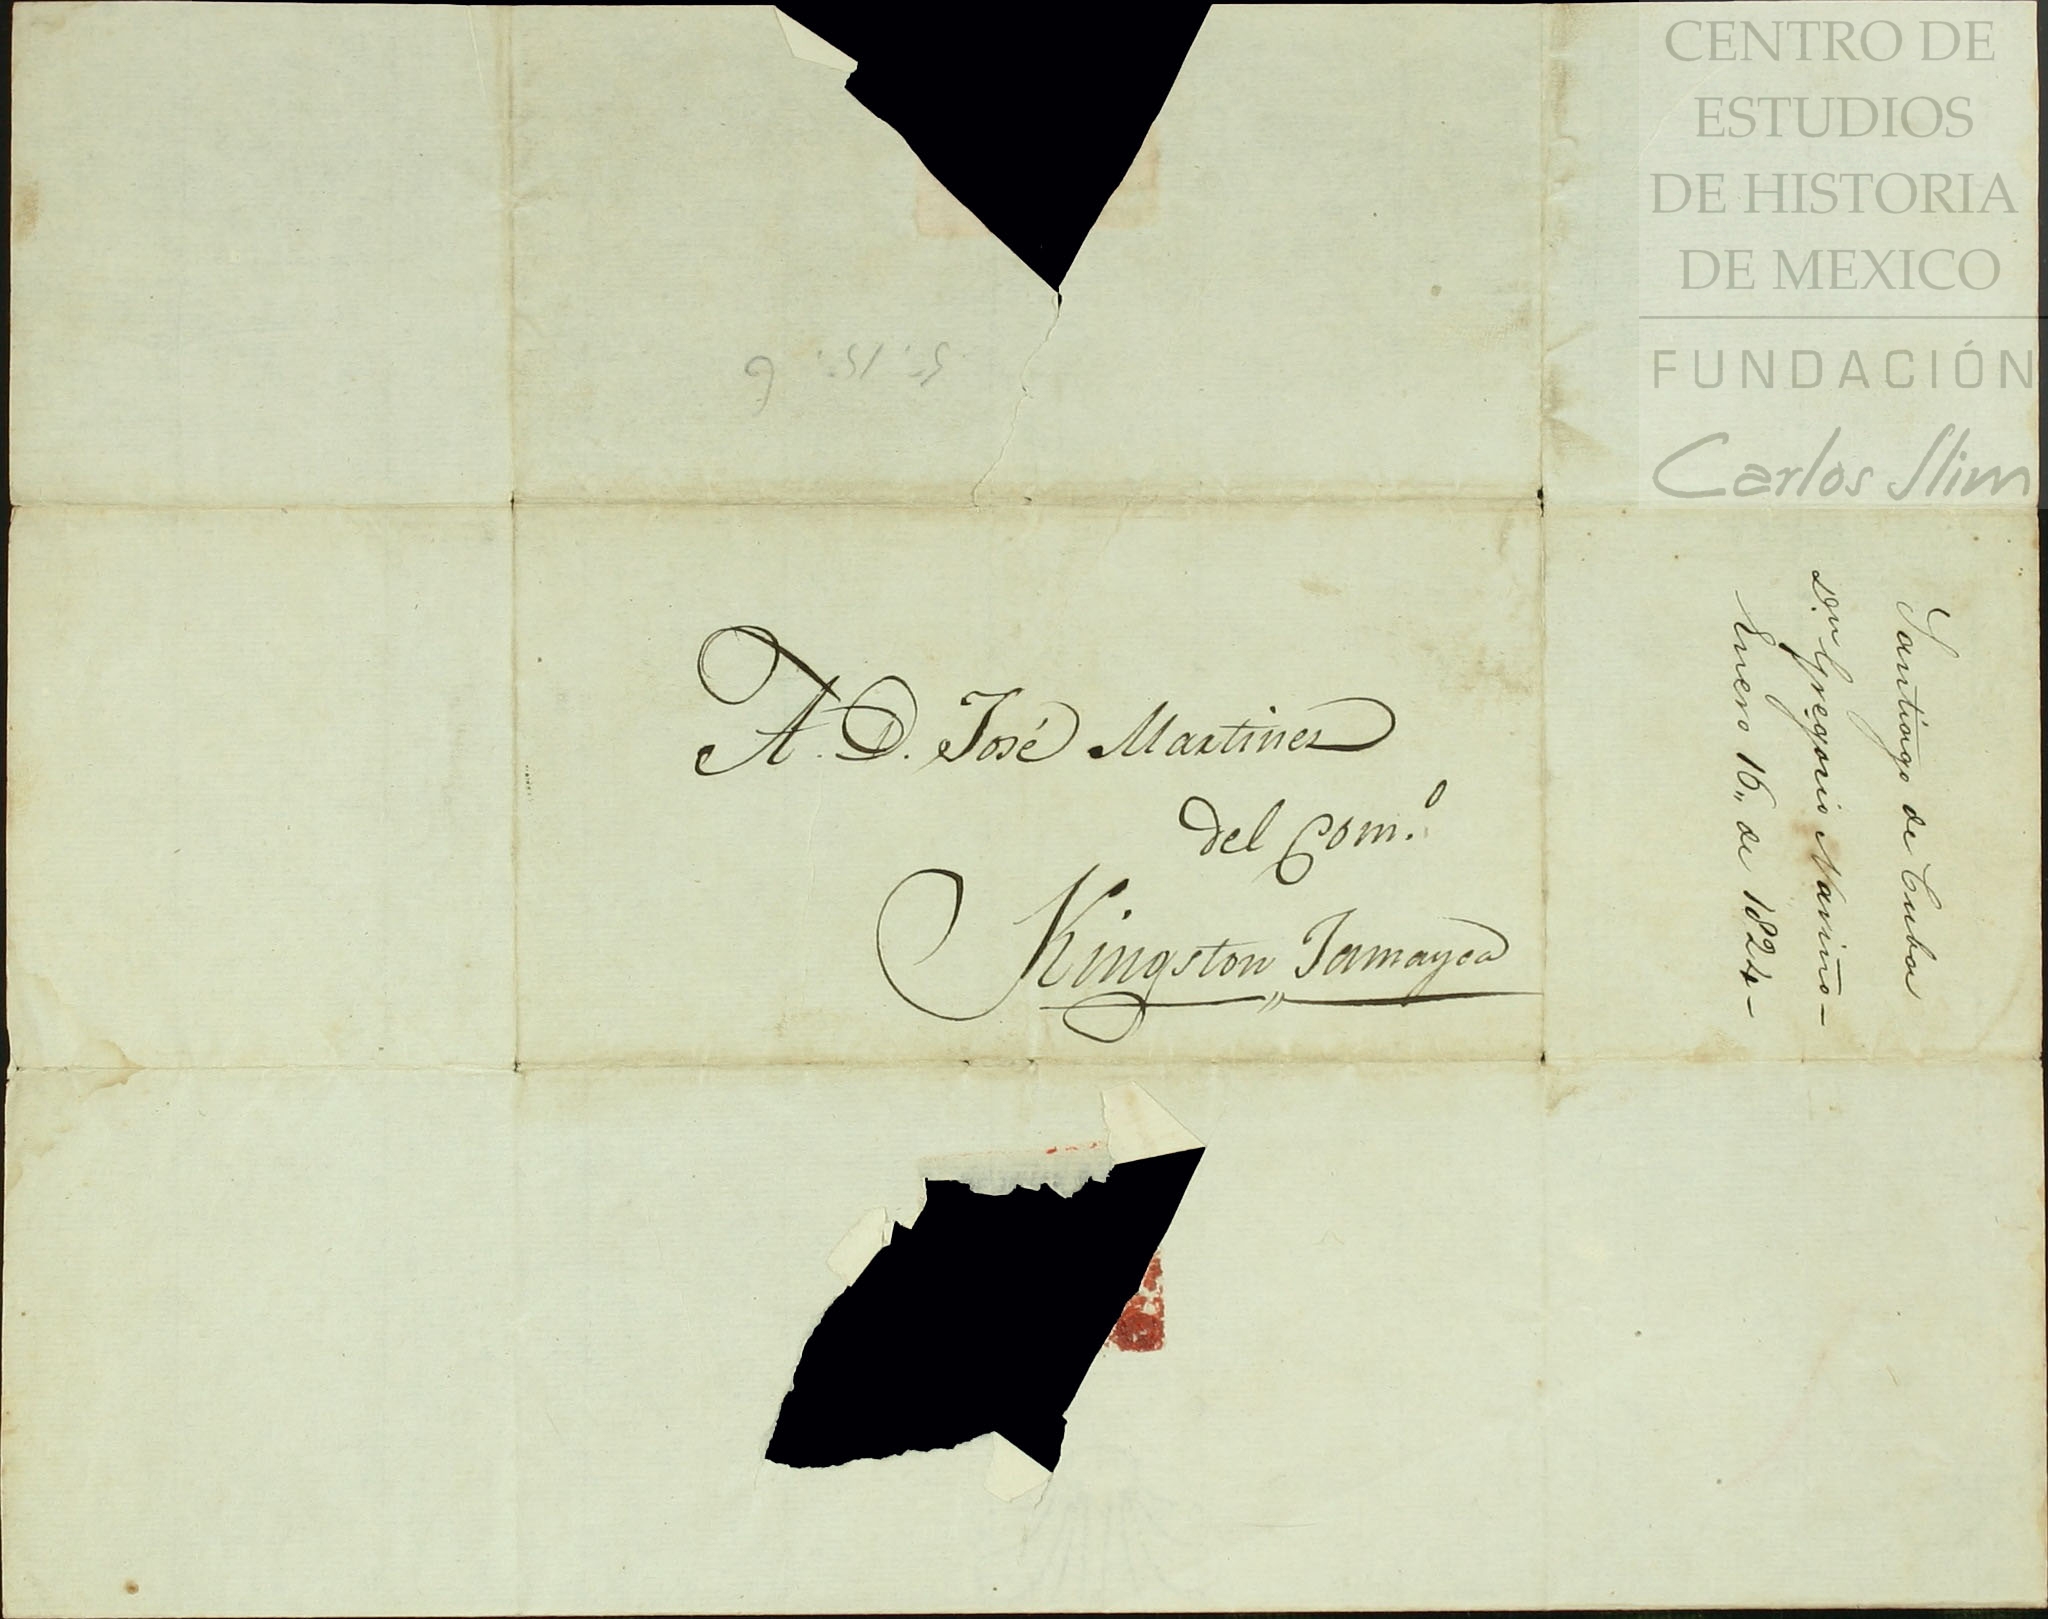 CENTRO DE
ESTUDIOS
DE HISTORIA
DE MEXICO
FUNDACIÓN
Carlos Slim
A. D. José Martinez
del Com.º
Kingston Jamayca
Santiago de Cuba
D.n Gregorio Nariño-
Enero 16,, de 1824-